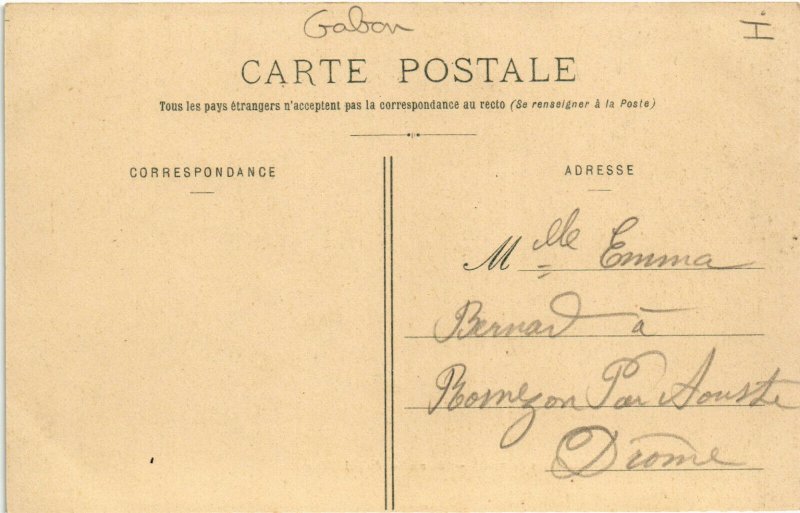 Gabon
I
CARTE POSTALE
Tous les pays étrangers n'acceptent pas la correspondance au recto (Se renseigner à la Poste)
CORRESPONDANCE
ADRESSE
Mlle Emma
Bernard à
Par Aouste
Drome